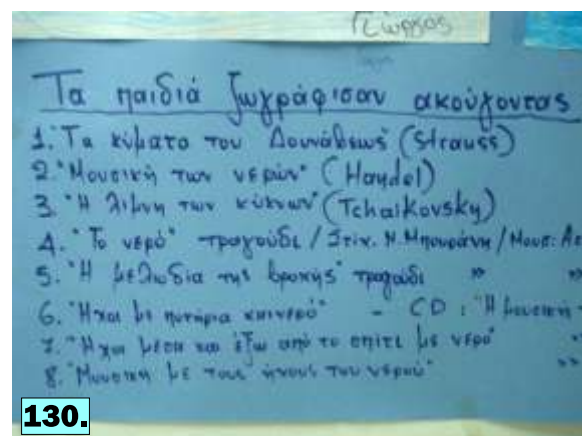 Γιώργος
Τα παιδιά ζωγράφισαν ακούγοντας
1. "Τα κύματα του Δουνάβεως" (Strauss)
2. "Μουσική των νερών" (Handel)
3. "Η λίμνη των κύκνων" (Tchaikovsky)
4. "Το νερό" τραγούδι / Στίχ. Ν. Μπουράνη / Μουσ:
5. "Η μελωδία της βροχής" τραγούδι " "
6. "Ήχοι με ποτήρια και νερό" - CD : "Η μουσική
7. "Ήχοι μέσα και έξω από το σπίτι με νερό" "
8. "Μουσική με τους ήχους του νερού" "
130.